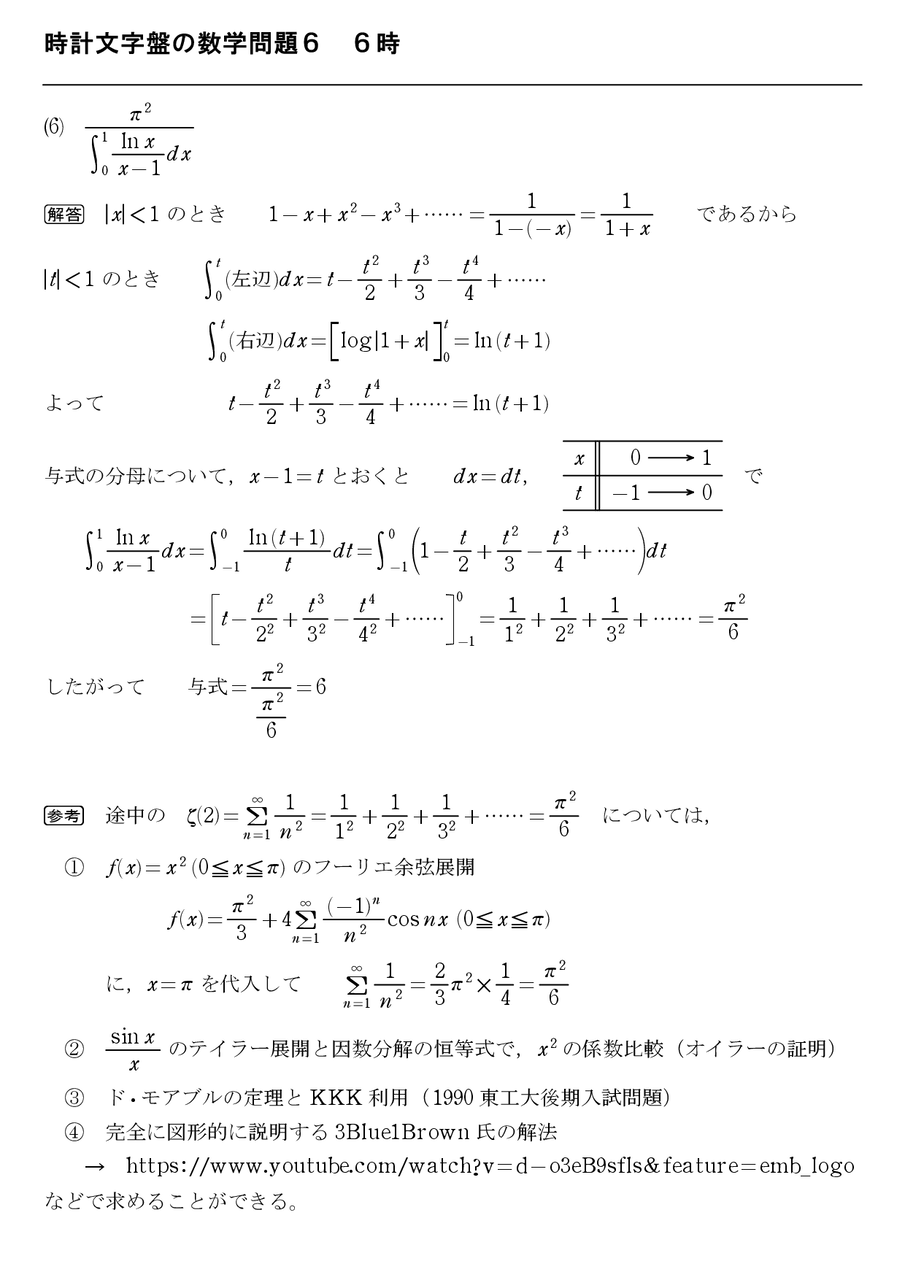 時計文字盤の数学問題6　6時
(6)　π² / ∫₀¹ (ln x)/(x−1) dx
解答　|x|<1 のとき　1−x+x²−x³+…… = 1/(1−(−x)) = 1/(1+x)　であるから
|t|<1 のとき　∫₀ᵗ (左辺)dx = t − t²/2 + t³/3 − t⁴/4 + ……
∫₀ᵗ (右辺)dx = [log|1+x|]₀ᵗ = ln(t+1)
よって　t − t²/2 + t³/3 − t⁴/4 + …… = ln(t+1)
与式の分母について，x−1=t とおくと　dx=dt，　x ‖ 0 ⟶ 1　で
t ‖ −1 ⟶ 0
∫₀¹ (ln x)/(x−1) dx = ∫₋₁⁰ (ln(t+1))/t dt = ∫₋₁⁰ (1 − t/2 + t²/3 − t³/4 + ……)dt
= [t − t²/2² + t³/3² − t⁴/4² + ……]₋₁⁰ = 1/1² + 1/2² + 1/3² + …… = π²/6
したがって　与式 = π²/(π²/6) = 6
参考　途中の　ζ(2) = Σ_{n=1}^{∞} 1/n² = 1/1² + 1/2² + 1/3² + …… = π²/6　については，
①　f(x)=x² (0≦x≦π) のフーリエ余弦展開
f(x) = π²/3 + 4 Σ_{n=1}^{∞} (−1)ⁿ/n² cos nx (0≦x≦π)
に，x=π を代入して　Σ_{n=1}^{∞} 1/n² = 2/3 π² × 1/4 = π²/6
②　sin x/x のテイラー展開と因数分解の恒等式で，x² の係数比較（オイラーの証明）
③　ド・モアブルの定理と KKK 利用（1990 東工大後期入試問題）
④　完全に図形的に説明する 3Blue1Brown 氏の解法
→　https://www.youtube.com/watch?v=d−o3eB9sfls&feature=emb_logo
などで求めることができる。